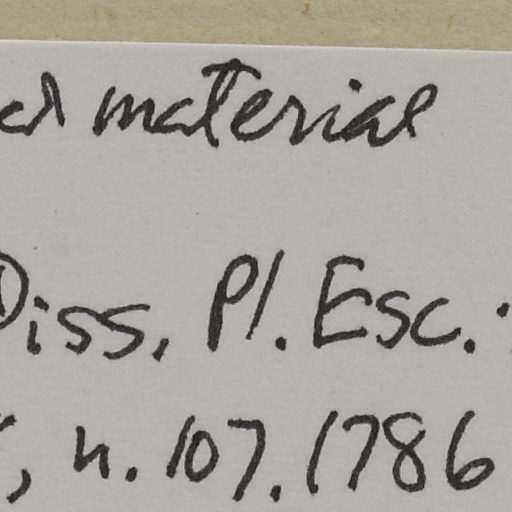 material
Diss. Pl. Esc.
, n. 107. 1786